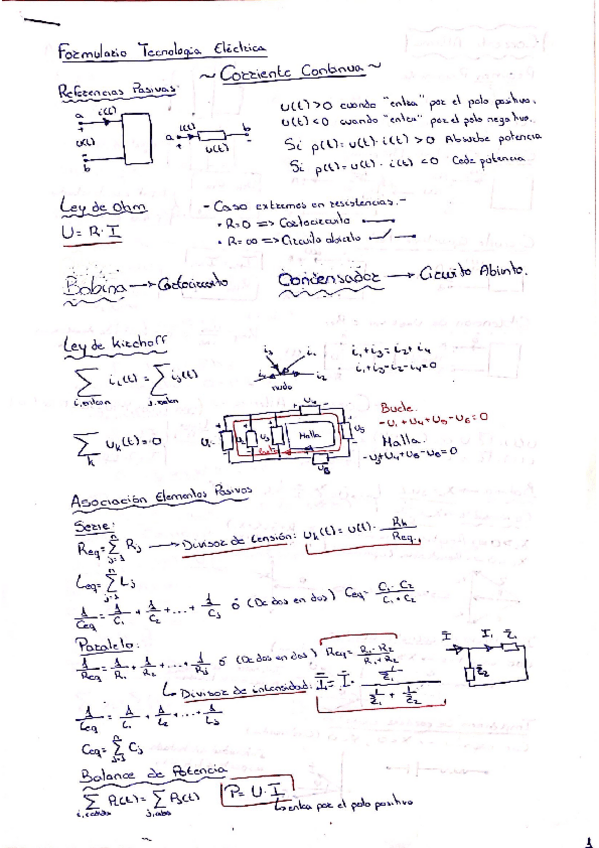 Formulario Tecnología Eléctrica
~ Corriente Continua ~
Referencias Pasivas:
a i(t) u(t) b
a i(t) u(t) b
u(t)>0 cuando "entra" por el polo positivo.
u(t)<0 cuando "entra" por el polo negativo.
Si p(t)=u(t)·i(t)>0 Absorbe potencia
Si p(t)=u(t)·i(t)<0 Cede potencia.
Ley de Ohm
U=R·I
- Caso extremos en resistencias.-
• R=0 => Cortocircuito
• R=∞ => Circuito abierto
Bobina → Cortocircuito
Condensador → Circuito Abierto.
Ley de Kirchoff
∑ i_i(t) = ∑ i_j(t)
i, entran j, salen
i₃ i₁ i₂
nudo
i₁+i₃=i₂+i₄
i₁+i₃-i₂-i₄=0
∑ u_k(t)=0
k
U₁ U₃ U₄ U₅ Malla
Bucle.
-U₁+U₄+U₅-U₆=0
Malla.
-U₃+U₄+U₅-U₆=0
Asociación Elementos Pasivos
Serie:
Req=∑ Rj → Divisor de tensión: u_k(t)=u(t)· Rk/Req
Leq=∑ Lj
1/Ceq = 1/C₁ + 1/C₂ +...+ 1/Cj ó (De dos en dos) Ceq= C₁·C₂/C₁+C₂
Paralelo:
1/Req = 1/R₁ + 1/R₂ +...+ 1/Rj ó (De dos en dos) Req= R₁·R₂/R₁+R₂
Divisor de intensidad: I₁=I· 1/Z₁ / 1/Z₁ + 1/Z₂
I I₁ Z₁
Z₂
1/Leq = 1/L₁ + 1/L₂ +...+ 1/Lj
Ceq=∑ Cj
Balance de Potencia
∑ Pi(t) = ∑ Pj(t) P=U·I
i, cedida j, abs
entra por el polo positivo
1